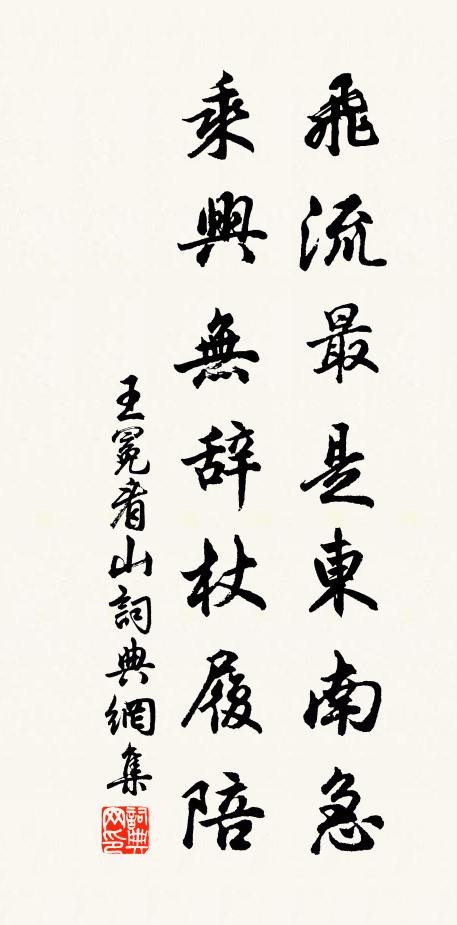 飛流最是東南急
乘興無辞杖履陪
王冕看山詞典網集
詞典網印